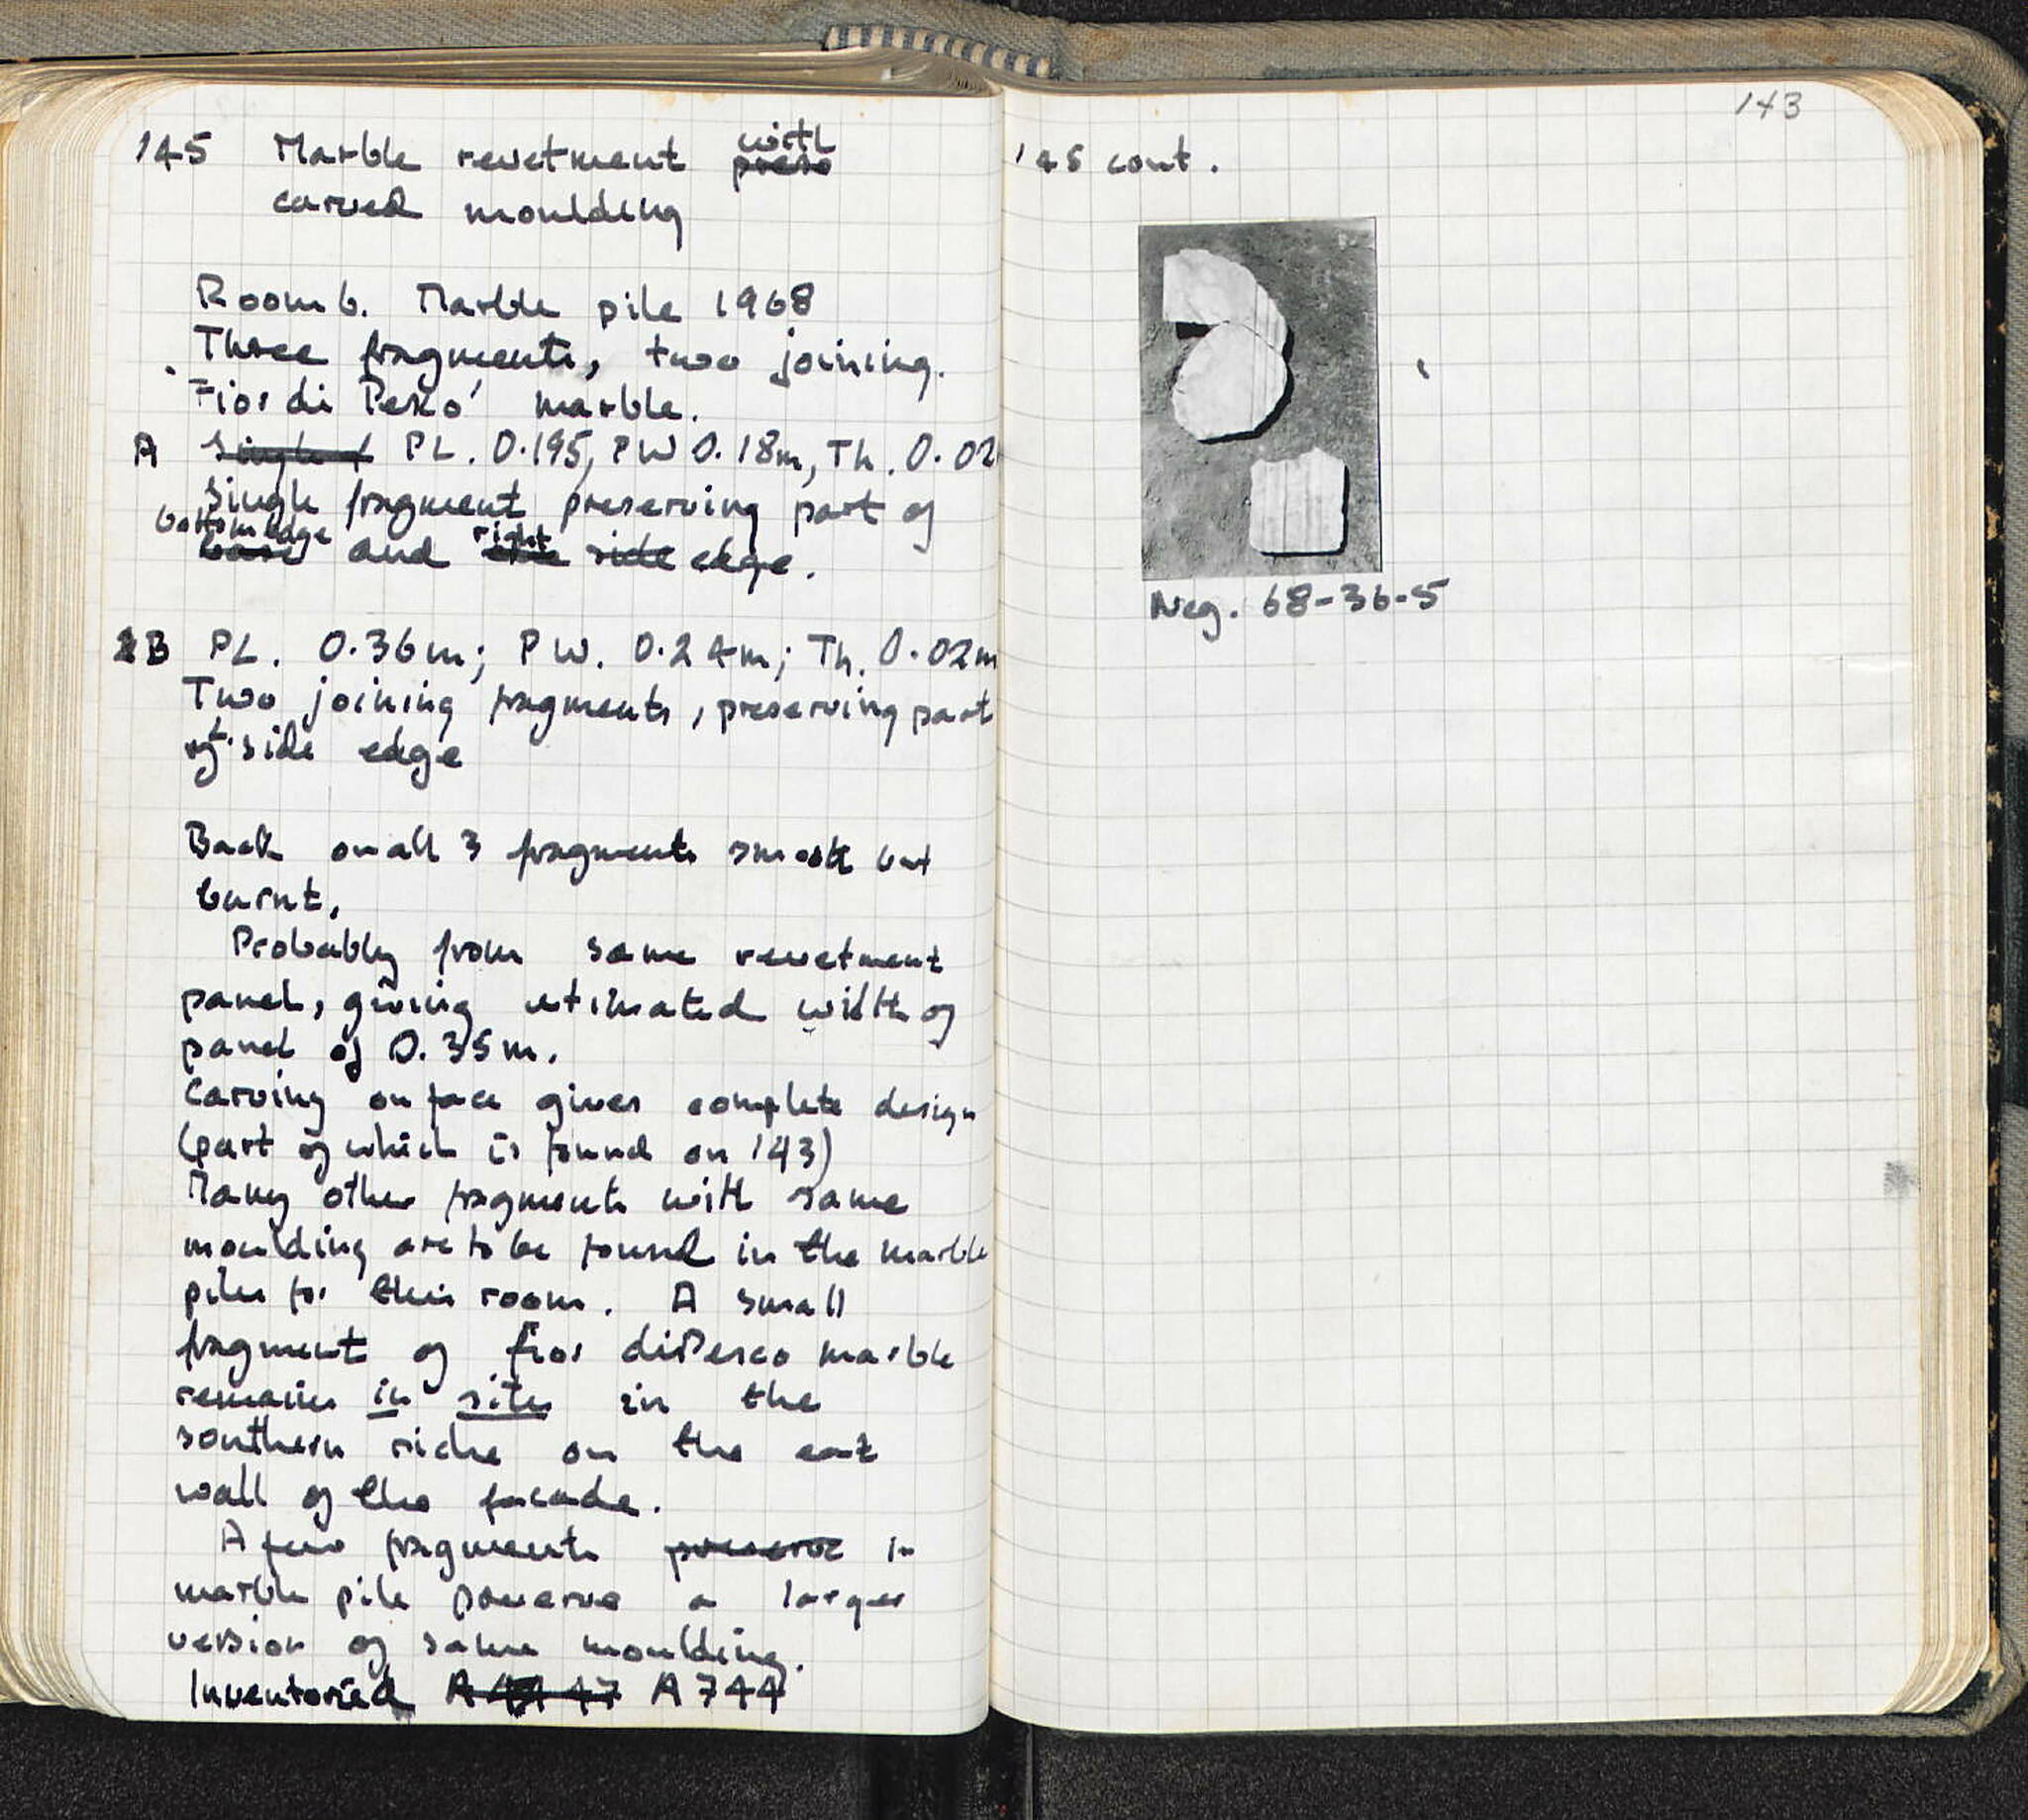 145 Marble revetment with
carved moulding
Room 6. Marble pile 1968
Three fragments, two joining.
'Fior di Pesco' marble.
A Single f PL. 0.195, PW 0.18m, Th. 0.02
Single fragment preserving part of
bottom edge
and right side edge.
B PL. 0.36m; PW. 0.24m; Th. 0.02m
Two joining fragments, preserving part
of side edge
Back on all 3 fragments smooth but
burnt.
Probably from same revetment
panel, giving estimated width of
panel of 0.35m.
Carving on face gives complete design
(part of which is found on 143)
Many other fragments with same
moulding are to be found in the marble
piles for this room. A small
fragment of fior di Pesco marble
remains in situ in the
southern niche on the east
wall of the facade.
A few fragments preserve in
marble pile preserve a larger
version of same moulding.
Inventoried A 744
143
145 cont.
Neg. 68-36-5